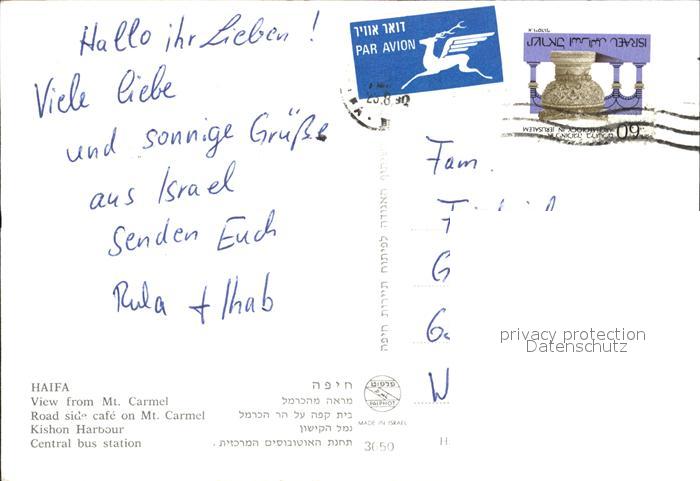 Hallo ihr Lieben !
Viele liebe
und sonnige Grüße
aus Israel
senden Euch
Rula + Ihab
דואר אוויר
PAR AVION
ISRAEL اسرائيل ישראל
ARCHAEOLOGY IN JERUSALEM
60
.8.90
Fam.
G
W
privacy protection
Datenschutz
HAIFA
View from Mt. Carmel
Road side café on Mt. Carmel
Kishon Harbour
Central bus station
חיפה
מראה מהכרמל
בית קפה על הר הכרמל
נמל הקישון
תחנת האוטובוסים המרכזית.
האגודה לפיתוח תיירות חיפה
פלפוט
PALPHOT
MADE IN ISRAEL
3650
H